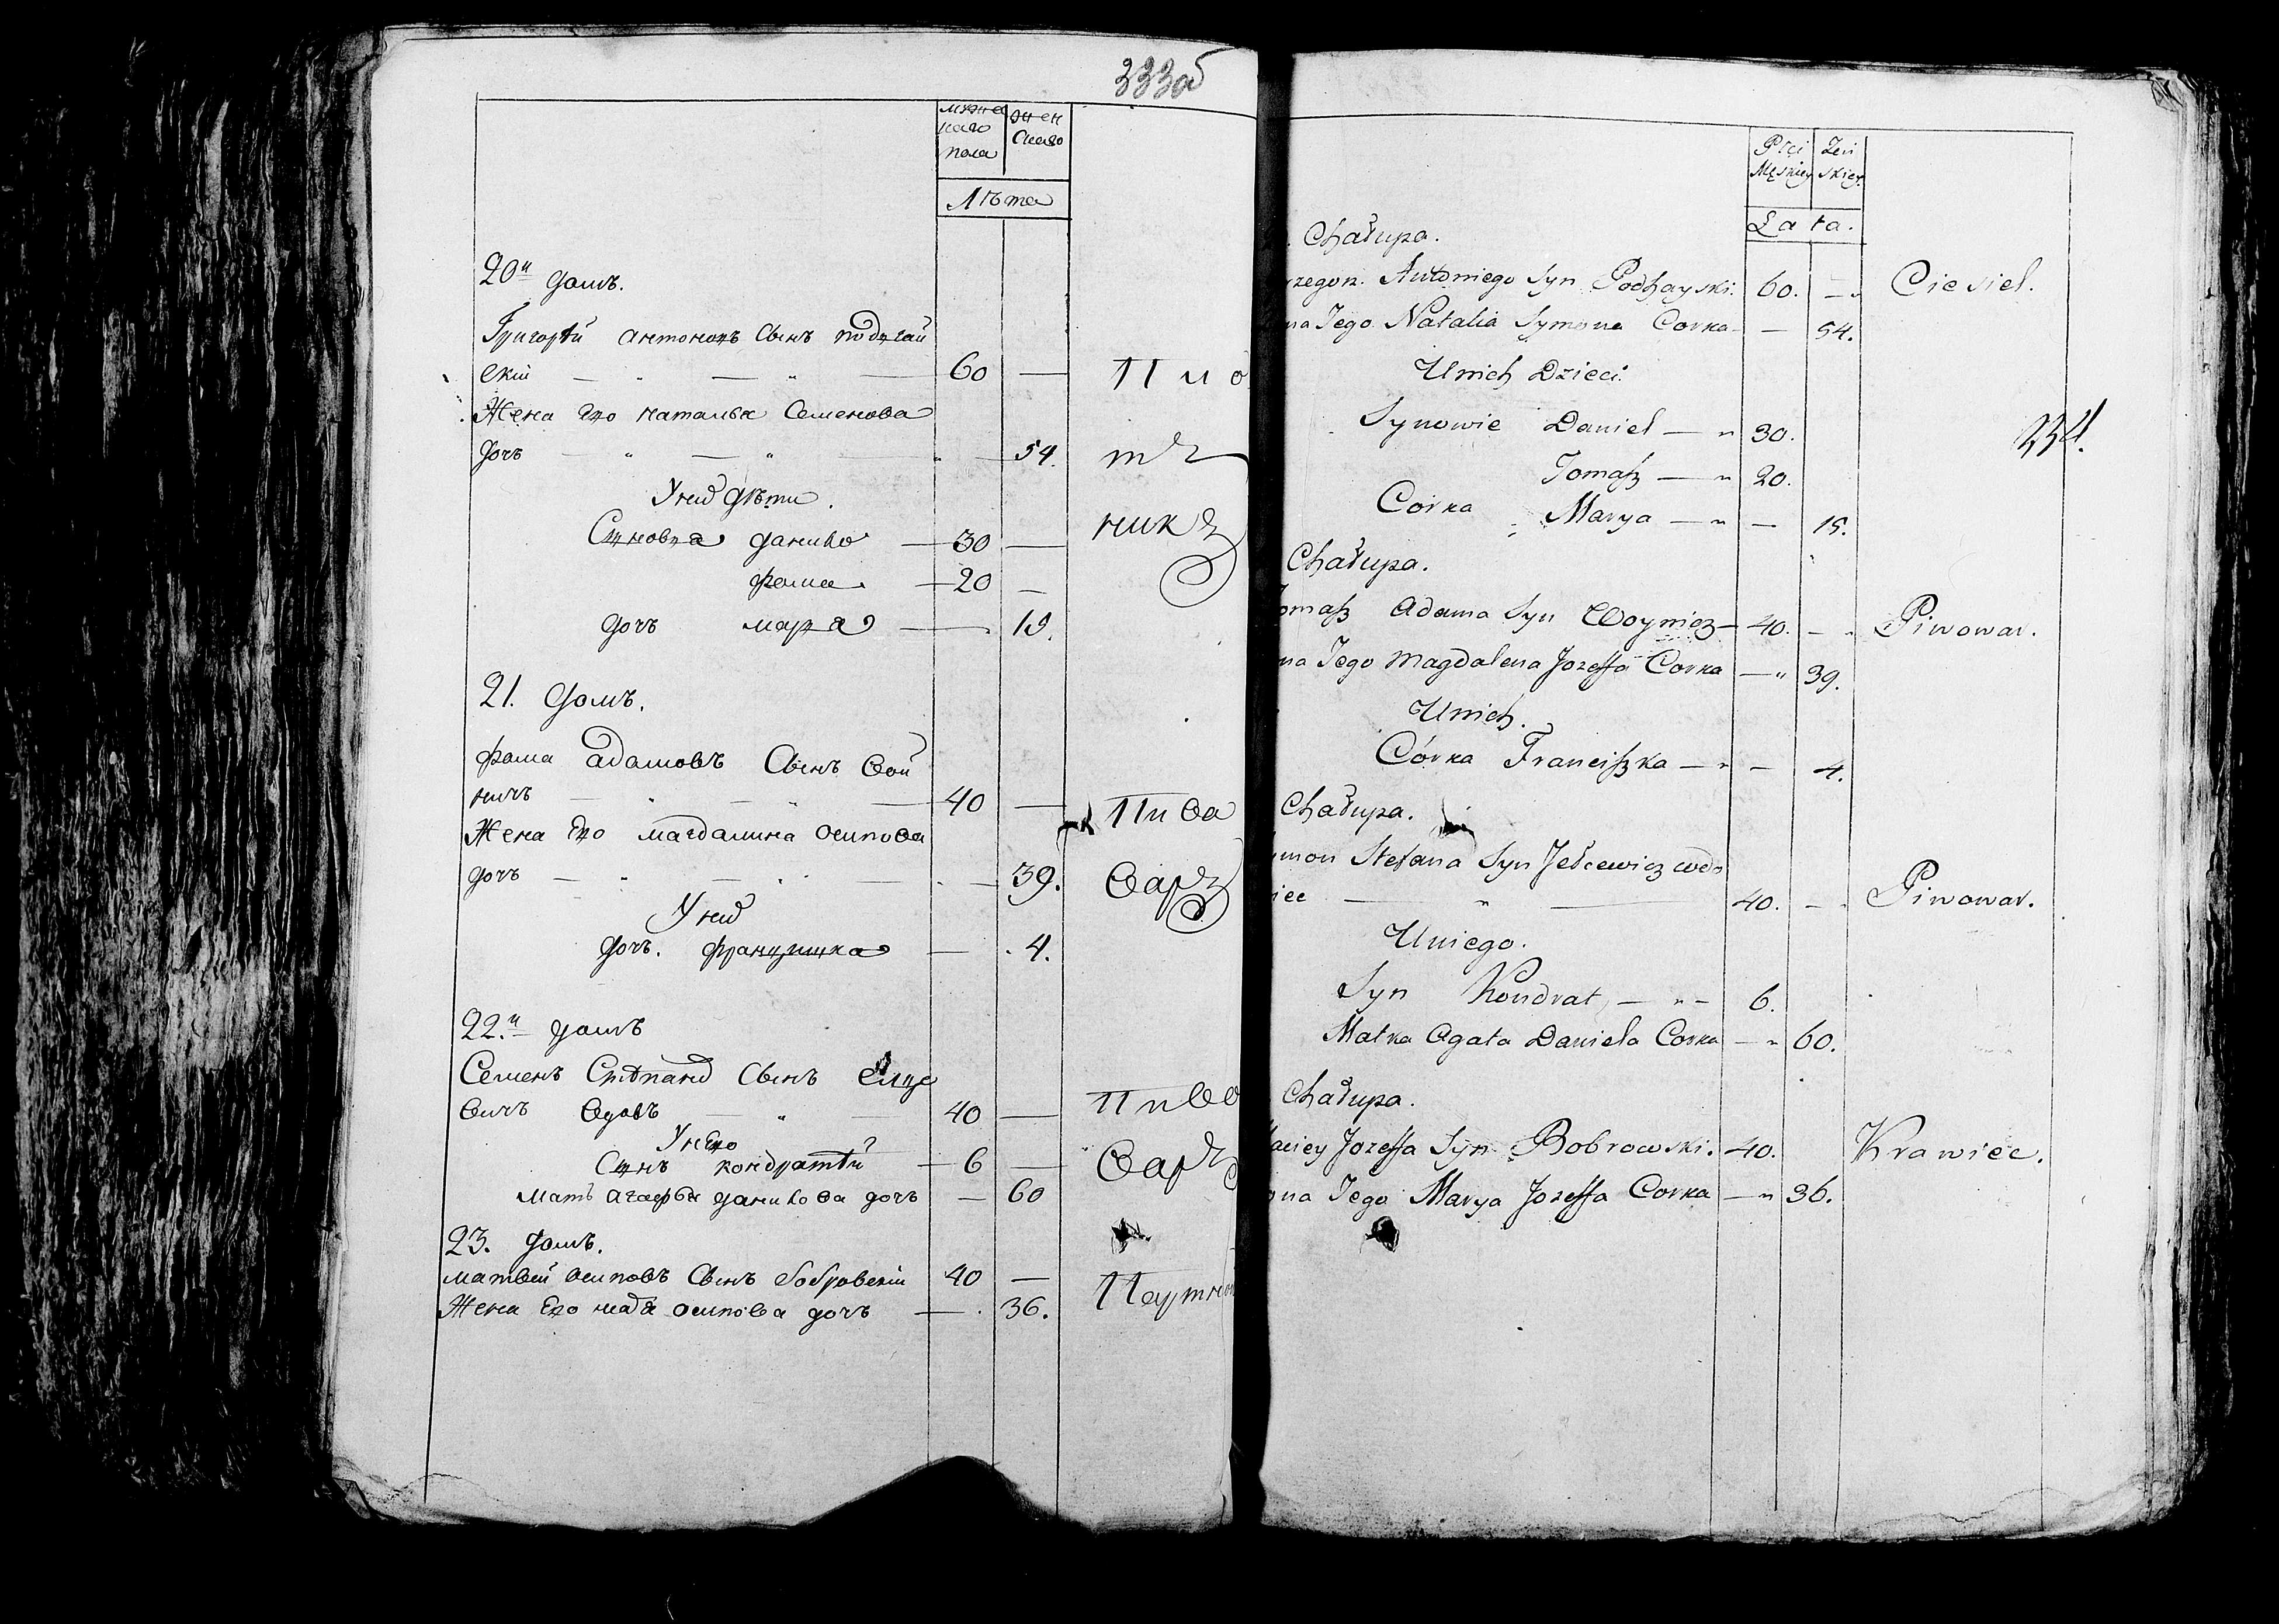 333об
мужескаго пола
женскаго
Лѣта
20й домъ.
Григорѣй антоновъ сынъ подгай
скій — " — " — 60 —
Жена Его наталья Семенова
дочъ — " — " — " — 54.
Уних дѣти.
Сынов‍ья данило — 30 —
фома — 20 —
дочъ марья — 15.
Пло
тъ
никъ
21. домъ.
фома адамовъ сынъ вой
ничъ — " — " — 40 —
Жена Его магдалина осипова
дочъ — " — " — " — 39.
Уних
дочъ. францишка — 4.
Пиво
варъ
22.й домъ
Семенъ Степанов сынъ елце
вичъ вдовъ — " — 40 —
Унего
Сынъ кондратѣй — 6 —
мать агафья данилова дочъ — 60
Пиво
варъ
23. домъ.
матвей осиповъ сынъ бобровскіи 40 —
Жена Его осипова дочъ — 36.
Płci Męskiey
Żeń skiey
Lata.
Chałupa.
rzegorz. Antoniego Syn Podhayski. 60. — Ciesiel.
na Jego Natalia Symona Corka — — 54.
Unich Dzieci.
Synowie Daniel — " 30.
234.
Tomaſz — " 20.
Corka Marya — " — 15.
Chałupa.
omaſz Adama Syn Woynicz — 40. — " Piwowar.
na Jego Magdalena Jozeffa Corka — " 39.
Unich.
Córka Franciſzka — " — 4.
Chałupa.
ymon Stefana Syn Jelcewicz wdo
iec — " — 40. — Piwowar.
Uniego.
Syn Kondrat, — " — 6.
Matka Agata Daniela Corka — " 60.
Chałupa.
aciey Jozeffa Syn Bobrowski. 40. Krawiec.
ona Jego Marya Jozeffa Corka — " 36.